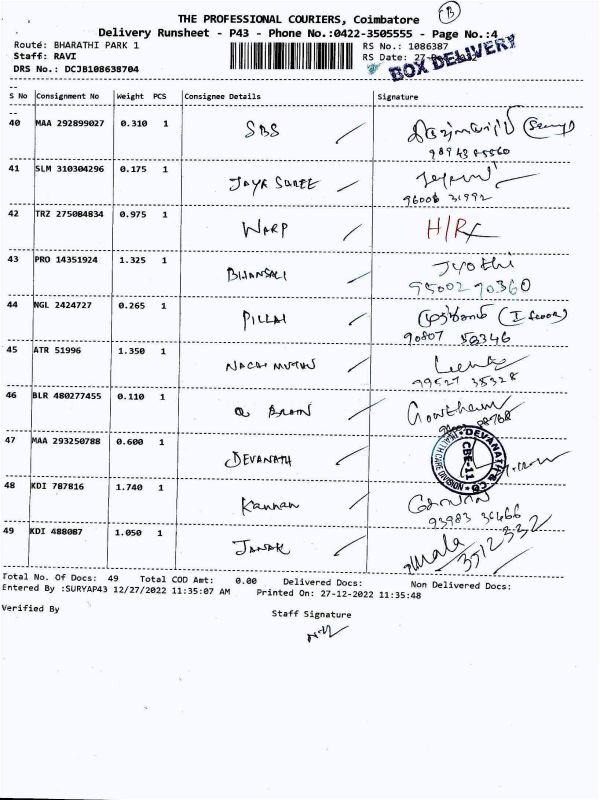 B
THE PROFESSIONAL COURIERS, Coimbatore
Delivery Runsheet - P43 - Phone No.:0422-3505555 - Page No.:4
Route: BHARATHI PARK 1
RS No.: 1086387
Staff: RAVI
RS Date: 27-
DRS No.: DCJB108638704
BOX DELIVERY
S No Consignment No Weight PCS Consignee Details Signature
40 MAA 292899027 0.310 1 SBS
41 SLM 310304296 0.175 1 JAYA SUREE
96006 31992
42 TRZ 275084834 0.975 1 WARP H/R
43 PRO 14351924 1.325 1 BHANSALI Jyothi
95002 70360
44 NGL 2424727 0.265 1 PILLAI
90807 50346
45 ATR 51996 1.350 1
99527 35328
46 BLR 480277455 0.110 1 Q BRAIN Gowtham
47 MAA 293250788 0.600 1 DEVANATH
DEVANATH & CO
HEALTH CARE DIVISION
CBE-11
48 KDI 787816 1.740 1 Kannan
93983 36466
49 KDI 488087 1.050 1 JANAK Mala
3512332
Total No. Of Docs: 49 Total COD Amt: 0.00 Delivered Docs: Non Delivered Docs:
Entered By :SURYAP43 12/27/2022 11:35:07 AM Printed On: 27-12-2022 11:35:48
Verified By
Staff Signature